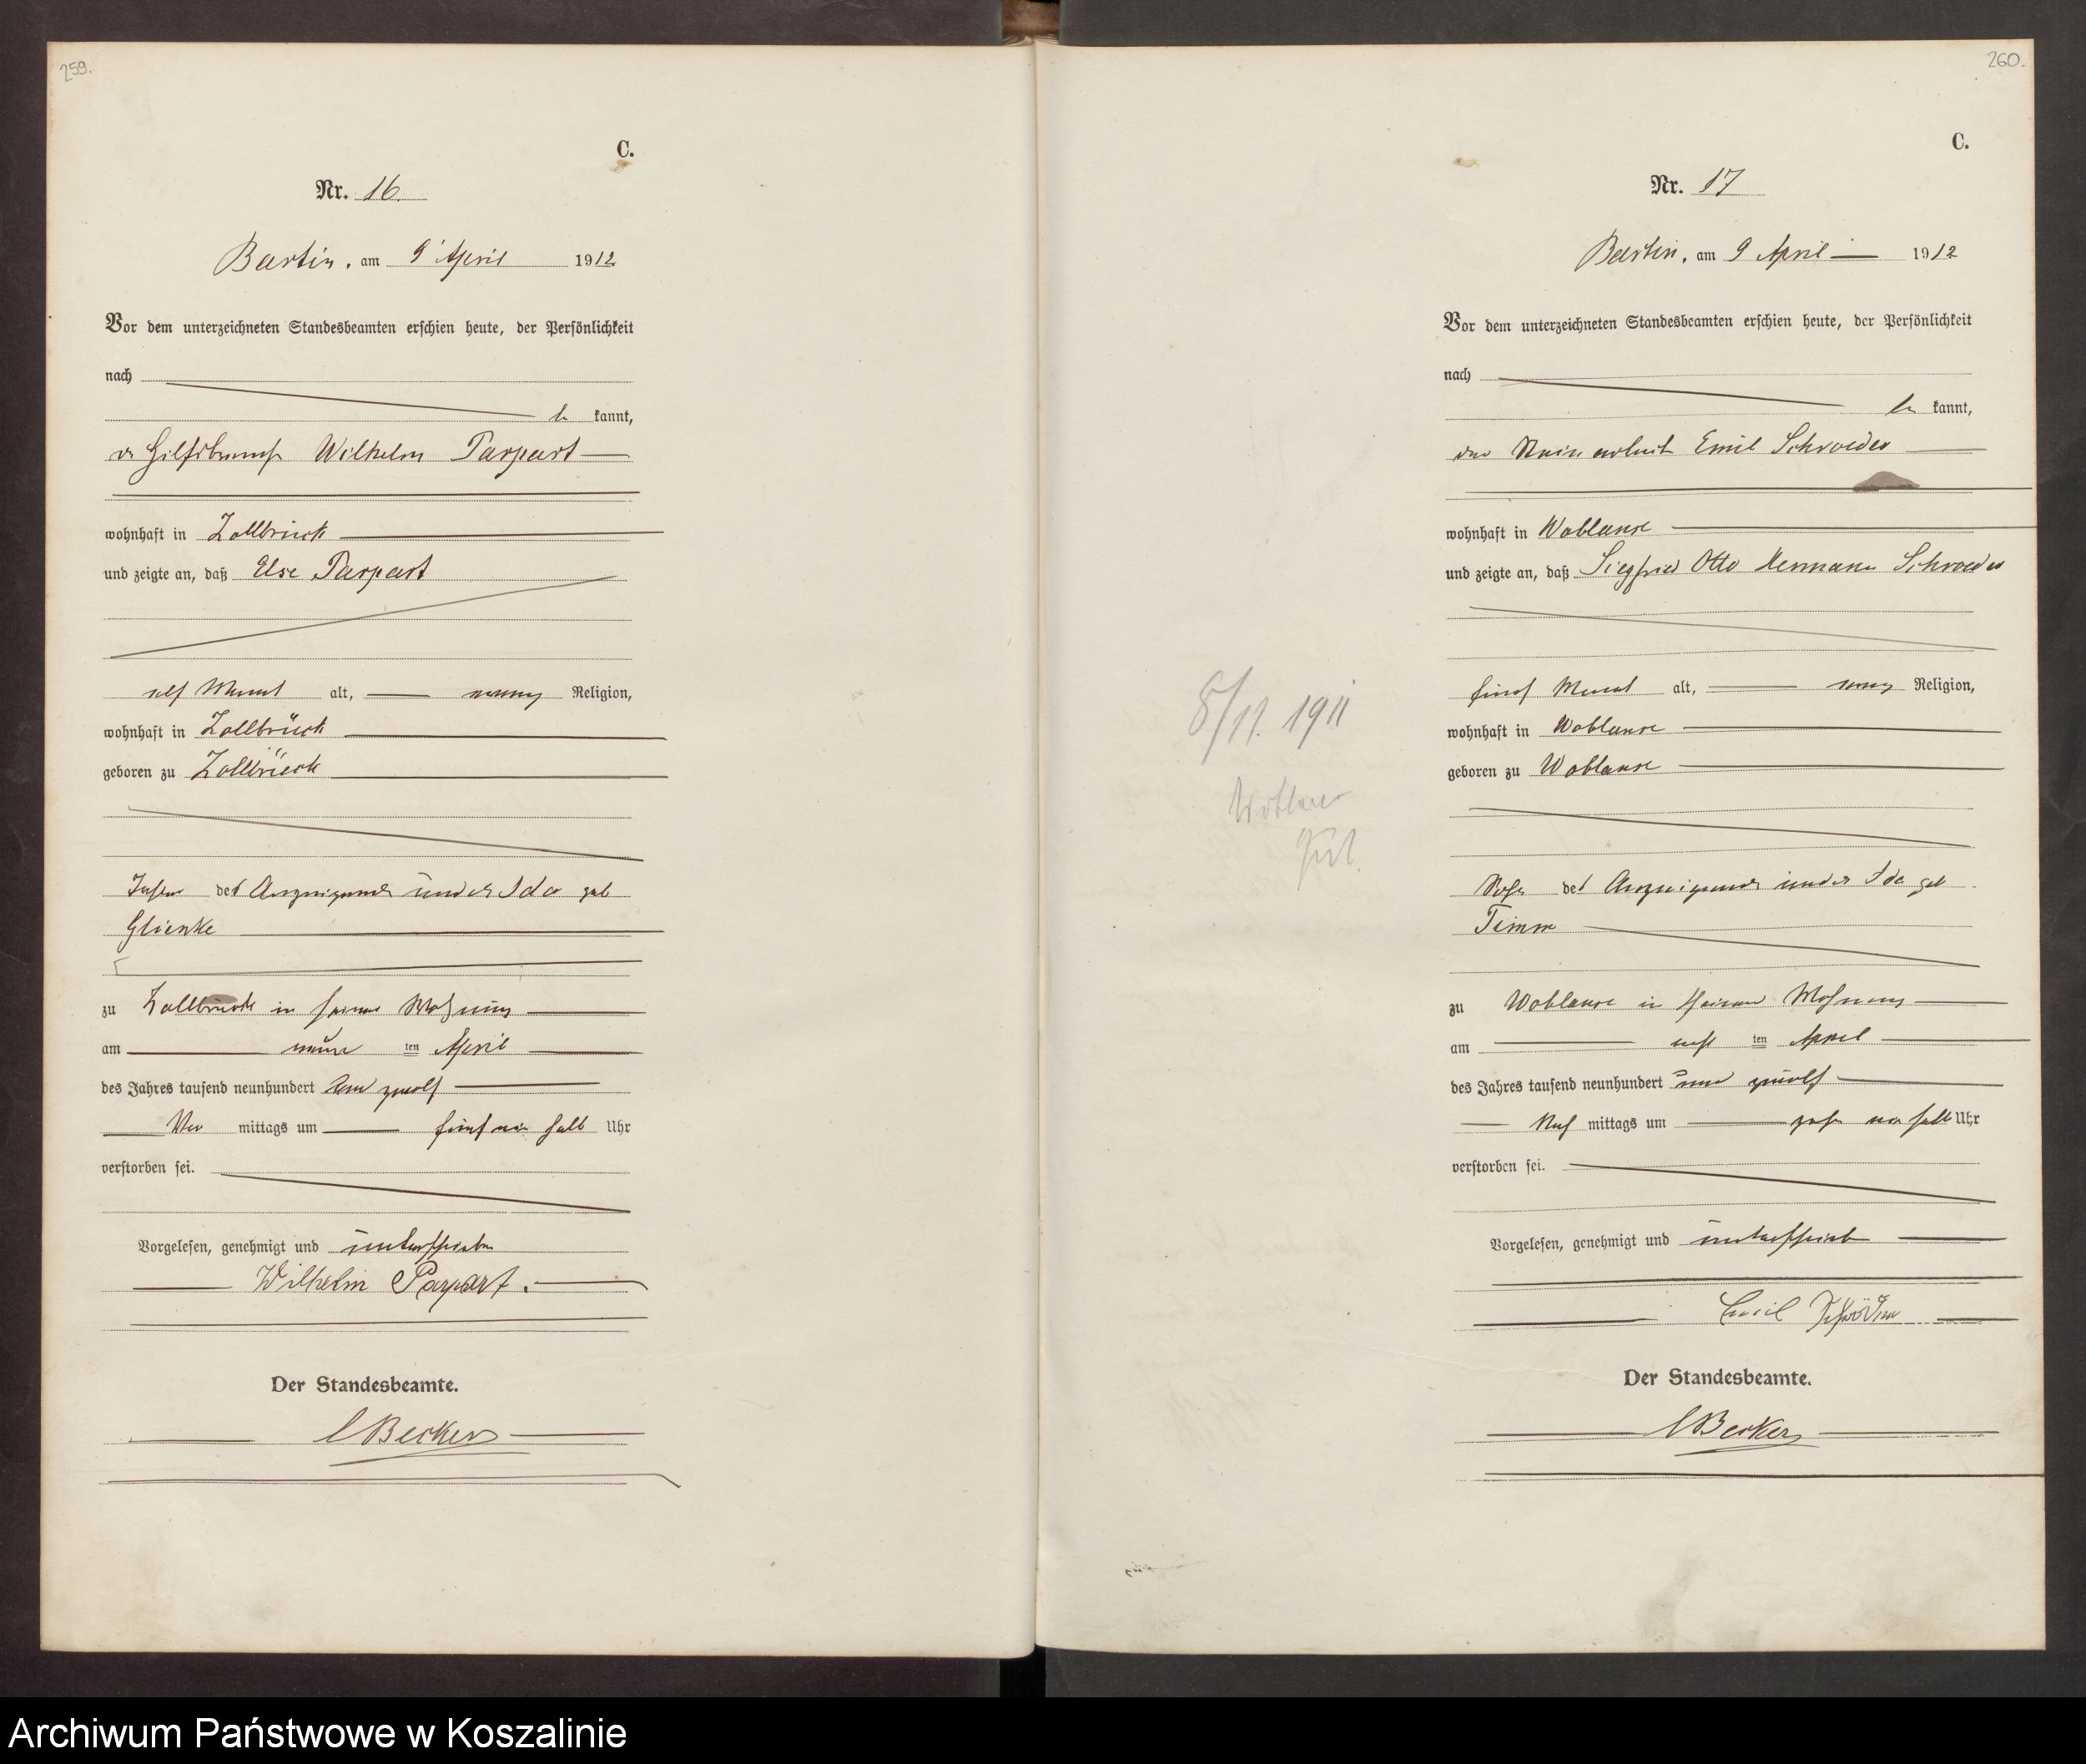 259.
C.
Nr. 16.
Bartin, am 9 April 1912
Vor dem unterzeichneten Standesbeamten erschien heute, der Persönlichkeit
nach
be kannt,
Wilhelm Parpart
wohnhaft in Zollbrück
und zeigte an, daß Else Parpart
elf Monat alt, Religion,
wohnhaft in Zollbrück
geboren zu Zollbrück
Tochter des Anzeigenden und der Ida geb
Glienke
zu Zollbrück in seiner Wohnung
am neun ten April
des Jahres tausend neunhundert und zwölf
Vor mittags um fünf ein halb Uhr
verstorben sei.
Vorgelesen, genehmigt und unterschrieben
Wilhelm Parpart.
Der Standesbeamte.
Becker
260.
C.
Nr. 17
Bartin, am 9 April 1912
Vor dem unterzeichneten Standesbeamten erschien heute, der Persönlichkeit
nach
be kannt,
der Emil Schroeder
wohnhaft in Woblanse
und zeigte an, daß Siegfried Otto Hermann Schroeder
fünf Monat alt, Religion,
wohnhaft in Woblanse
geboren zu Woblanse
8/11. 1911
Gut
Sohn des Anzeigenden und der Ida geb
Timm
zu Woblanse in seiner Wohnung
am ten April
des Jahres tausend neunhundert und zwölf
Nach mittags um zehn ein halb Uhr
verstorben sei.
Vorgelesen, genehmigt und unterschrieben
Emil Schröder
Der Standesbeamte.
Becker
Archiwum Państwowe w Koszalinie